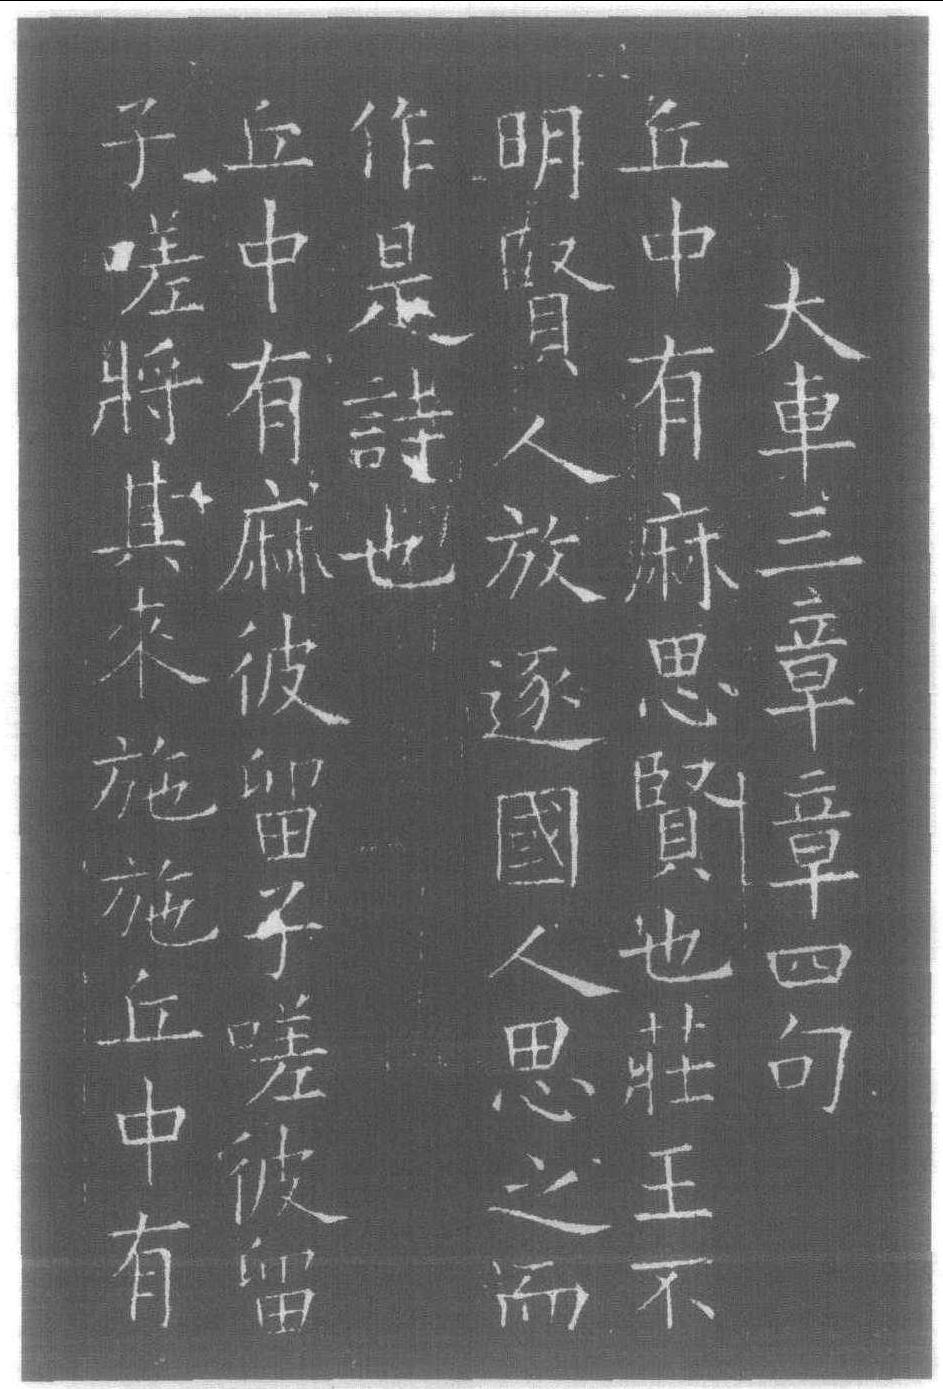 大車三章章四句
丘中有麻思賢也莊王不
明賢人放逐國人思之而
作是詩也
丘中有麻彼留子嗟彼留
子嗟將其來施施丘中有